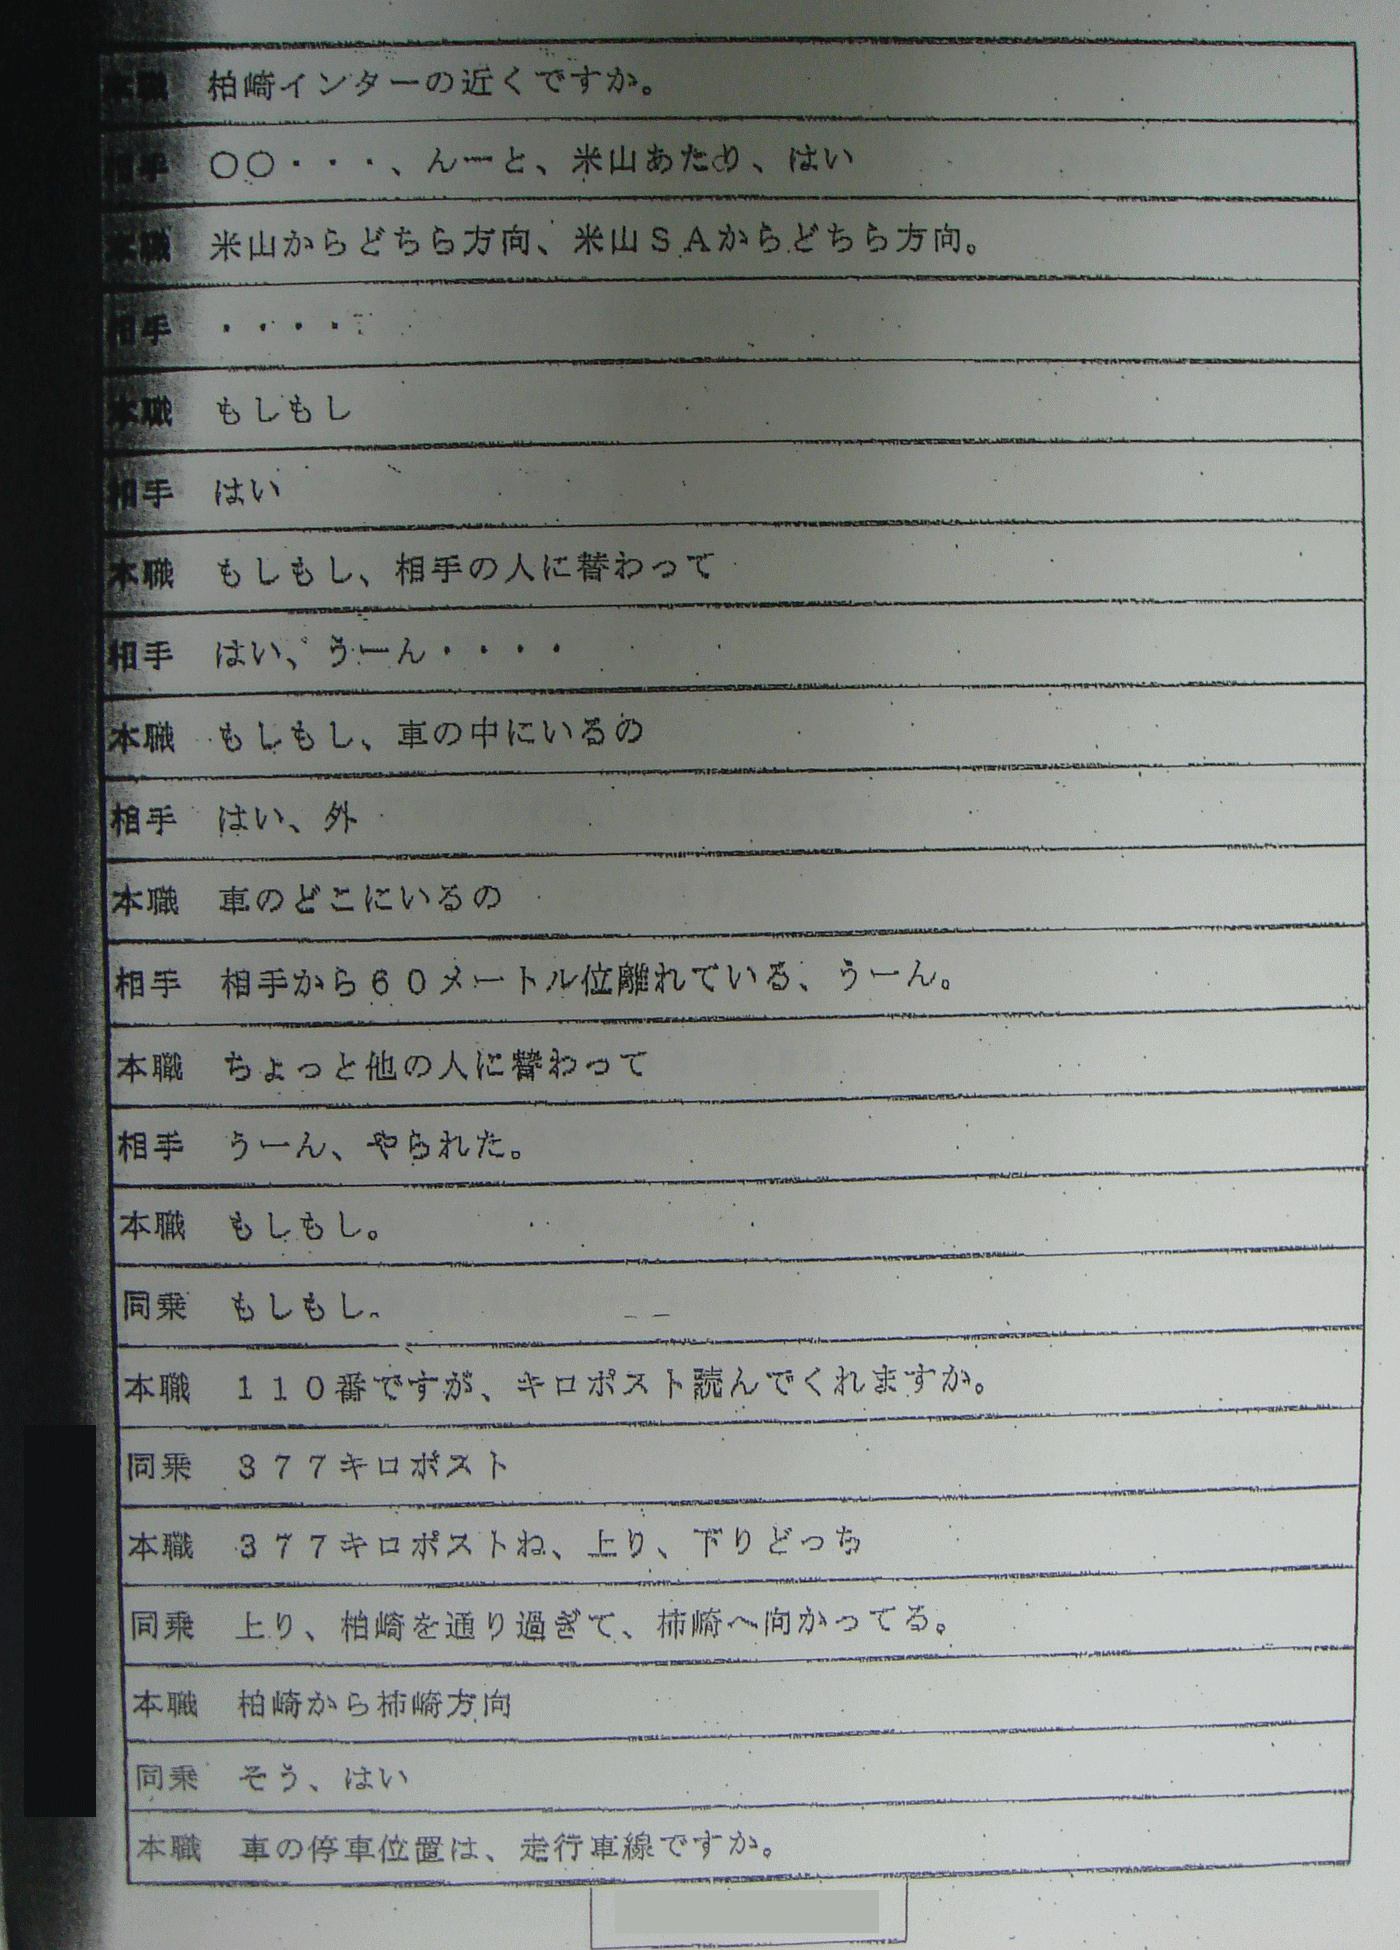 本職 柏崎インターの近くですか。
相手 〇〇・・・、んーと、米山あたり、はい
本職 米山からどちら方向、米山SAからどちら方向。
相手 ・・・・
本職 もしもし
相手 はい
本職 もしもし、相手の人に替わって
相手 はい、うーん・・・・
本職 もしもし、車の中にいるの
相手 はい、外
本職 車のどこにいるの
相手 相手から60メートル位離れている、うーん。
本職 ちょっと他の人に替わって
相手 うーん、やられた。
本職 もしもし。
同乗 もしもし。
本職 110番ですが、キロポスト読んでくれますか。
同乗 377キロポスト
本職 377キロポストね、上り、下りどっち
同乗 上り、柏崎を通り過ぎて、柿崎へ向かってる。
本職 柏崎から柿崎方向
同乗 そう、はい
本職 車の停車位置は、走行車線ですか。